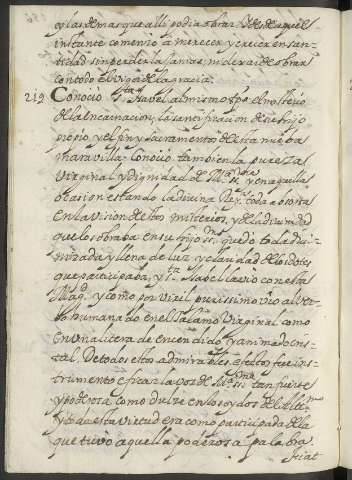 y las demas que alli podia obrar. Desde aquel
instante comenzo a merecer y crecer en san-
tidad sin perderla jamas, ni dexar de obrar
con todo el vigor de la gracia.
219 Conocio S.ta Isabel al mismo tpo. el misterio
de la encarnacion, la santificacion de su hijo
proprio, y el fin y sacramentos de esta nueba
marabilla. Conocio tambien la pureza
virginal y dignidad de M.ª SS.ma y en aquella
ocasion estando la divina Reyna toda absorta
en la vision de estos misterios, y de la divinidad
que los obraba en su hijo SS.mo quedo toda divi-
nizada y llena de luz y claridad de los dotes
que participaba, y S.ta Isabel la vio con esta
Mag.d y como por viril purissimo vio al ver-
bo humanado en el Talamo Virginal como
en una litera de encendido y animado cris-
tal. De todos estos admirables efectos fue ins-
trumento eficaz la voz de M.ª SS.ma tan fuerte
y poderosa como dulce en los oydos del Altissmo
y toda esta virtud era como participada de la
que tuvo aquella poderosa palabra
fiat